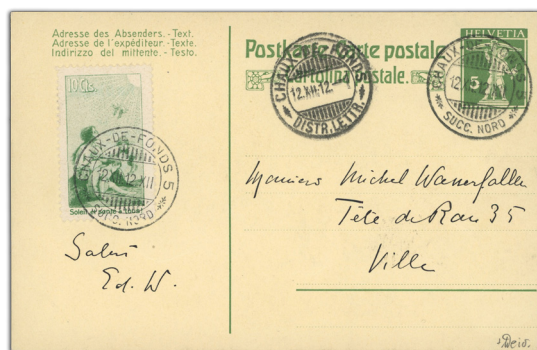 Adresse des Absenders. - Text.
Adresse de l'expéditeur. - Texte.
Indirizzo del mittente. - Testo.
10 Cts.
CHAUX-DE-FONDS 5
12.XII.12.XII
SUCC. NORD
Salut
Ed. W.
Postkarte Carte postale.
Cartolina postale.
CHAUX-DE-FONDS
12.XII.12.
DISTR. LETTR.
HELVETIA
5
CHAUX-DE-FONDS 5
SUCC. NORD
Monsieur Michel
Tête de Ran 35
Ville